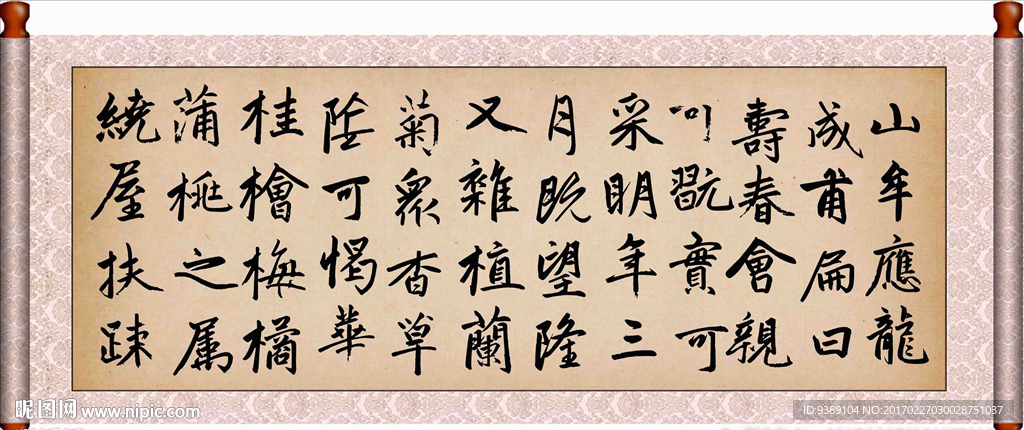 山牟應龍
成甫扁曰
壽春會親
翫實可
采明年三
月既望隆
又雜植蘭
菊眾香草
陰可愒華
桂檜梅橘
蒲桃之属
繞屋扶疎
昵图网 www.nipic.com
ID:9389104 NO:20170227030028751037